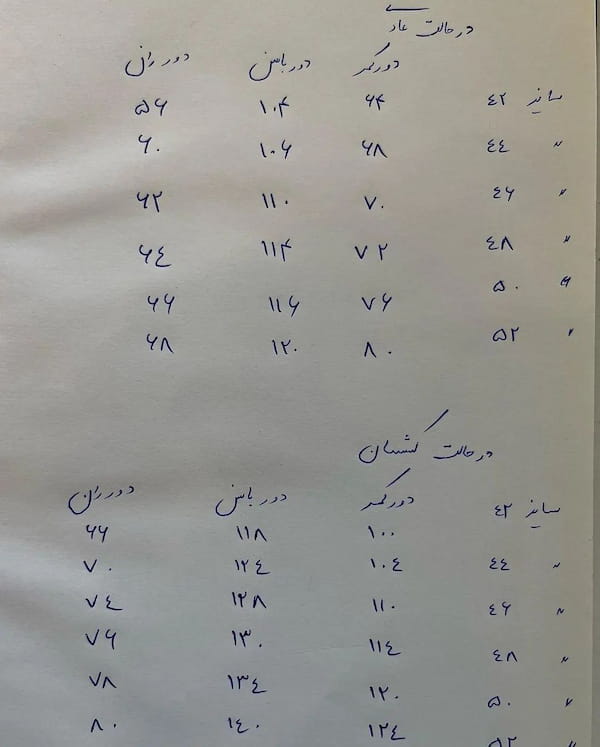 در حالت عادی
دور کمر دور باسن دور ران
سایز ٤٢ ۶۴ ۱۰۴ ۵۶
〃 ٤٤ ۶۸ ۱۰۶ ۶۰
〃 ٤۶ ۷۰ ۱۱۰ ۶۲
〃 ٤۸ ۷۲ ۱۱۴ ۶٤
〃 ۵۰ ۷۶ ۱۱۶ ۶۶
〃 ۵۲ ۸۰ ۱۲۰ ۶۸
در حالت کشسان
دور کمر دور باسن دور ران
سایز ٤٢ ۱۰۰ ۱۱۸ ۶۶
〃 ٤٤ ۱۰٤ ۱۲٤ ۷۰
〃 ٤۶ ۱۱۰ ۱۲۸ ۷٤
〃 ٤۸ ۱۱٤ ۱۳۰ ۷۶
〃 ۵۰ ۱۲۰ ۱۳٤ ۷۸
〃 ۵۲ ۱۲٤ ۱٤۰ ۸۰